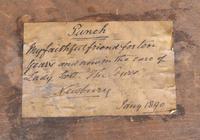 Punch
My faithful friend for ten
years and now in the care of
Lady Scott. The Firs
Newbury
Jany 1890